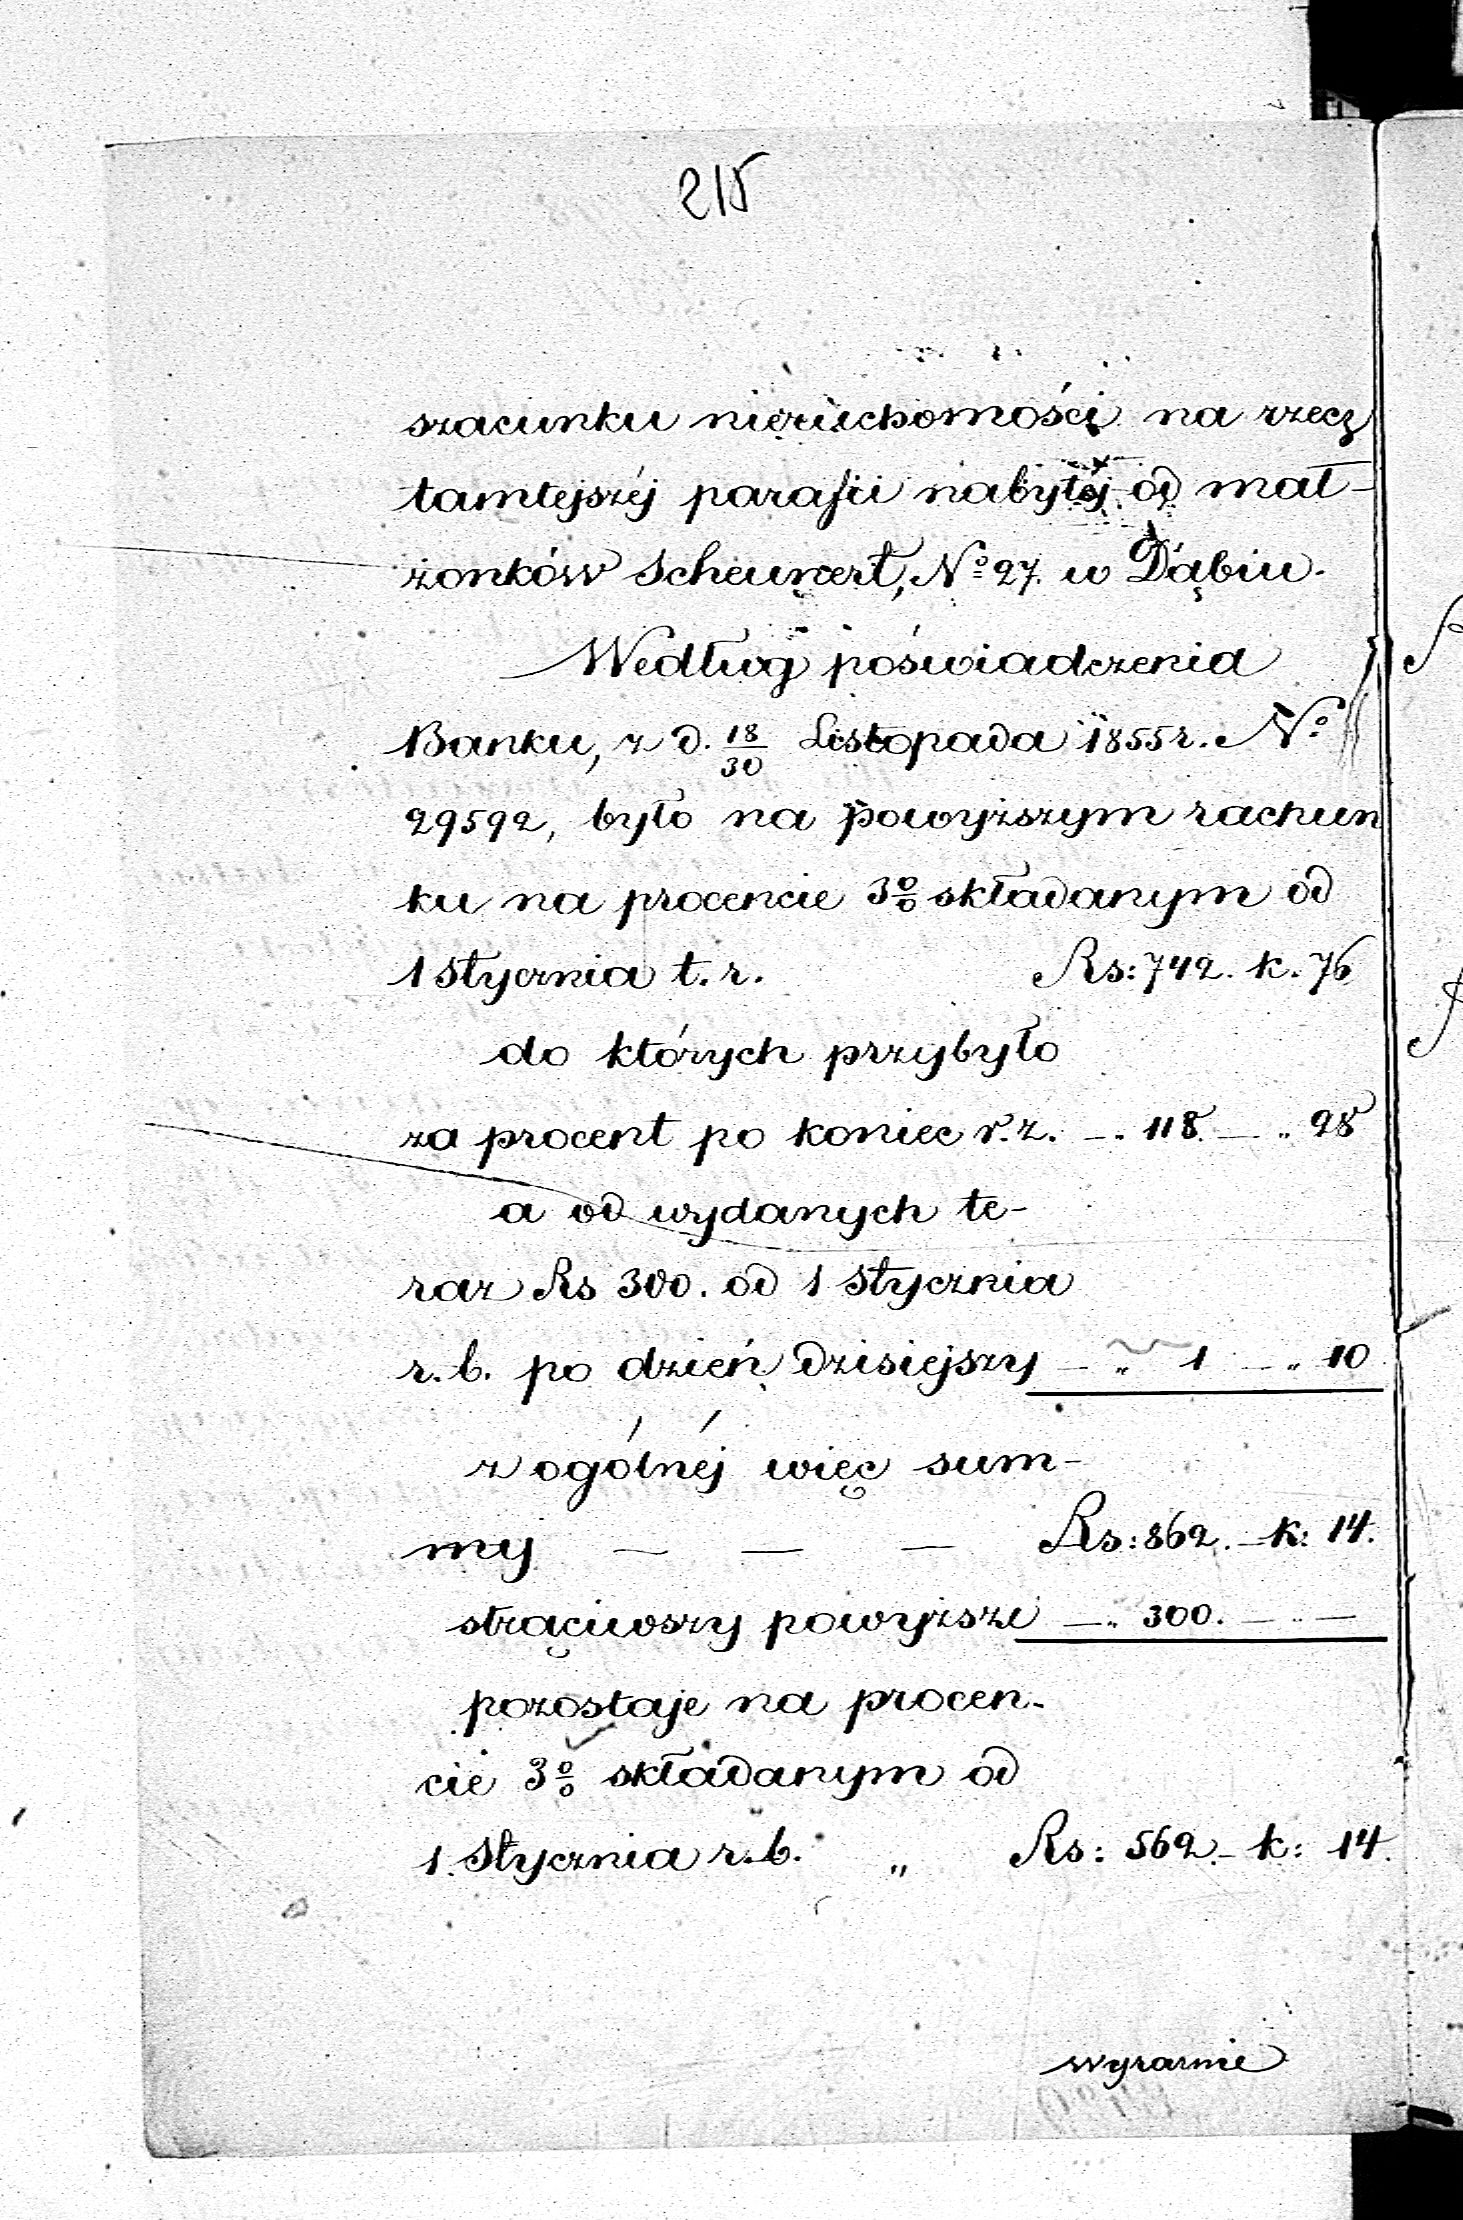 215
szacunku nieruchomości na rzecz
tamtejszéj parafii nabytéj od mał-
żonków Scheunert, No 27. w Dąbiu.
Według poświadczenia
Banku, z d. 18/30 Listopada 1855 r. No
29592, było na powyższym rachun
ku na procencie 3% składanym od
1 Stycznia t. r. Rs: 742. k. 76
do których przybyło
za procent po koniec r. z. — „ 118. — „ 28
a od wydanych te-
raz Rs 300. od 1 Stycznia
r. b. po dzień dzisiejszy — „ 1 — „ 10
z ogólnéj więc sum-
my — — — Rs: 862. — k: 14.
strąciwszy powyższe — „ 300. — „ —
pozostaje na procen-
cie 3% składanym od
1. Stycznia r. b. „ Rs: 562. — k: 14.
wyraźnie